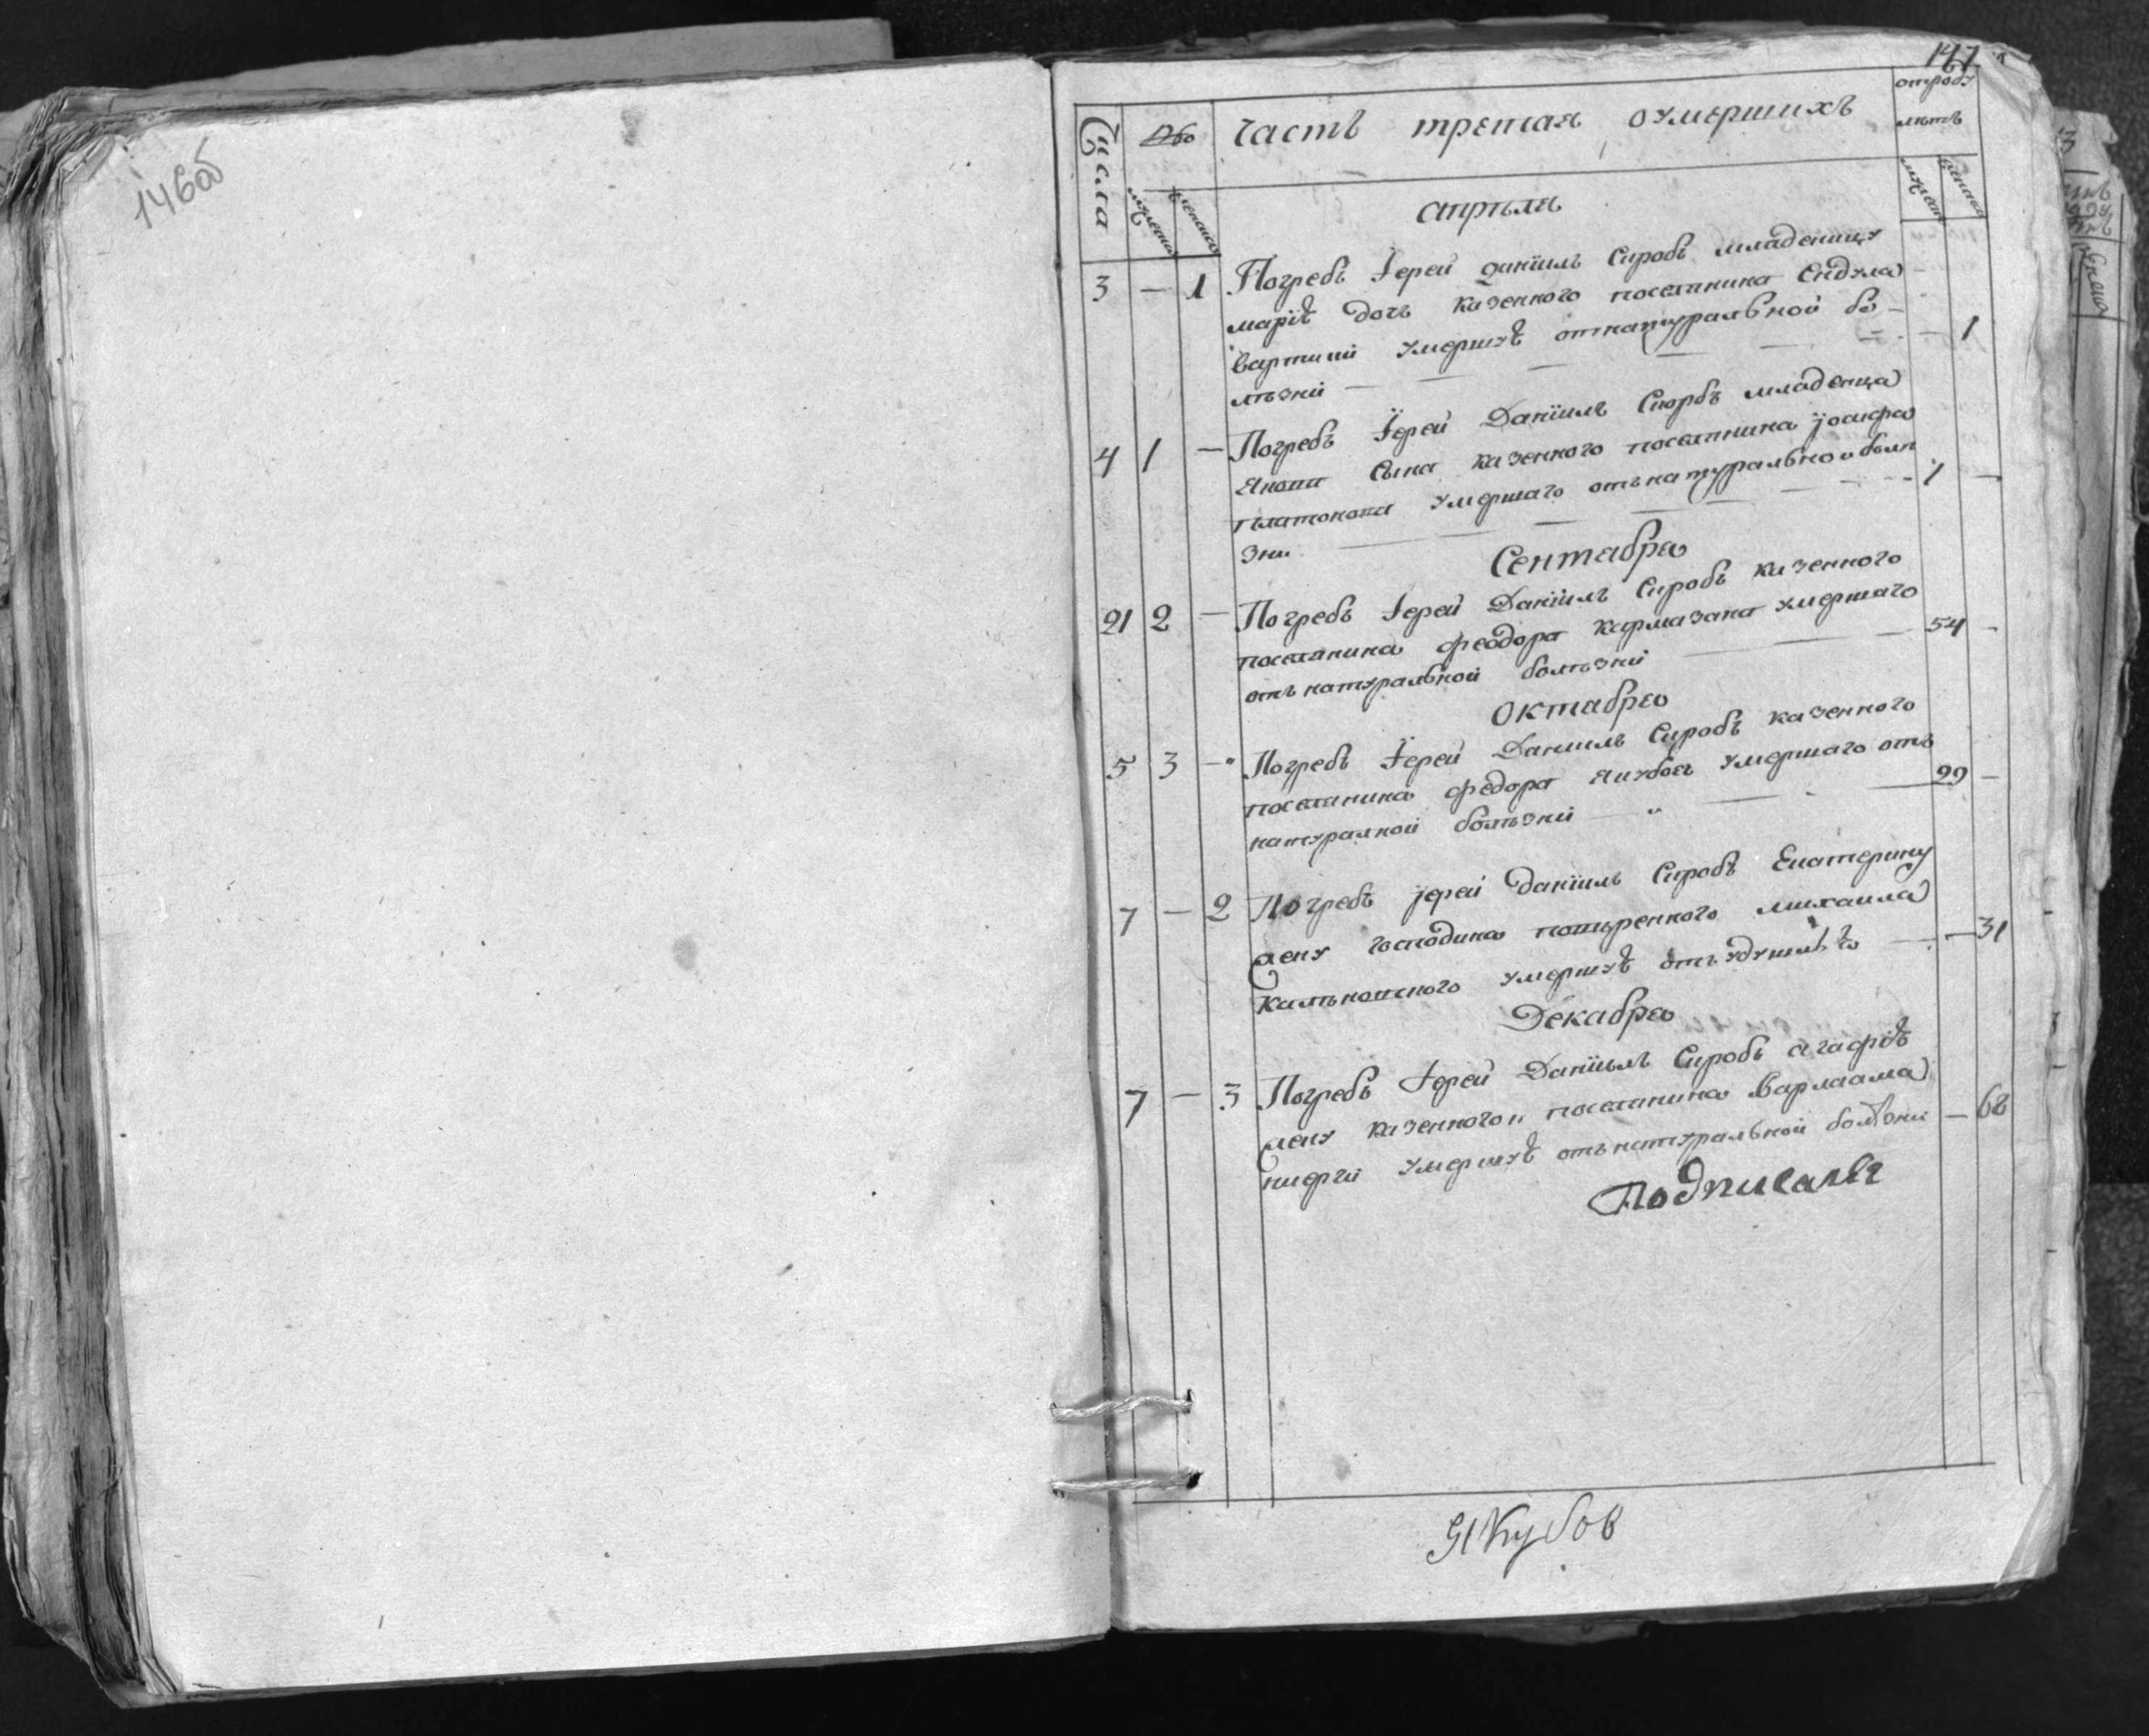 146об
147
Числа
Часть третая оумершихъ
отроду
летъ
мужеска
женска
апрѣля
3 — 1 Погребъ Іерей Даніилъ Сиробъ младеницу
маріѣ дочъ казенного поселянина Ендула
умершуѣ отнатуральной бо-
лѣзни — 1
4 1 — Погребъ Іерей Даніилъ Сиорбъ младенца
Якова Сына казенного поселянина Іосифа
Платонова умершаго отънатуральной болѣ
зни — 1 —
Сентабра
21 2 — Погребъ Іерей Даніилъ Сиробъ казенного
поселянина Феодора Кармазана умершаго
отънатуральной болѣзни — 54 —
Октабра
5 3 — Погребъ Іерей Даниилъ Сиробъ казенного
поселянина Федора Якубов умершаго отъ
натуралной болѣзни — 29 —
7 — 2 Погребъ Іерей Даніилъ Сиробъ Екатерину
жену Господина Михаила
умершуѣ отъ — 31
Декабра
7 — 3 Погребъ Іерей Даніилъ Сиробъ агафіѣ
жену казенного поселянина Варлаама
умершуѣ отънатуральной болѣзни — 68
Подписалъ
Якубов